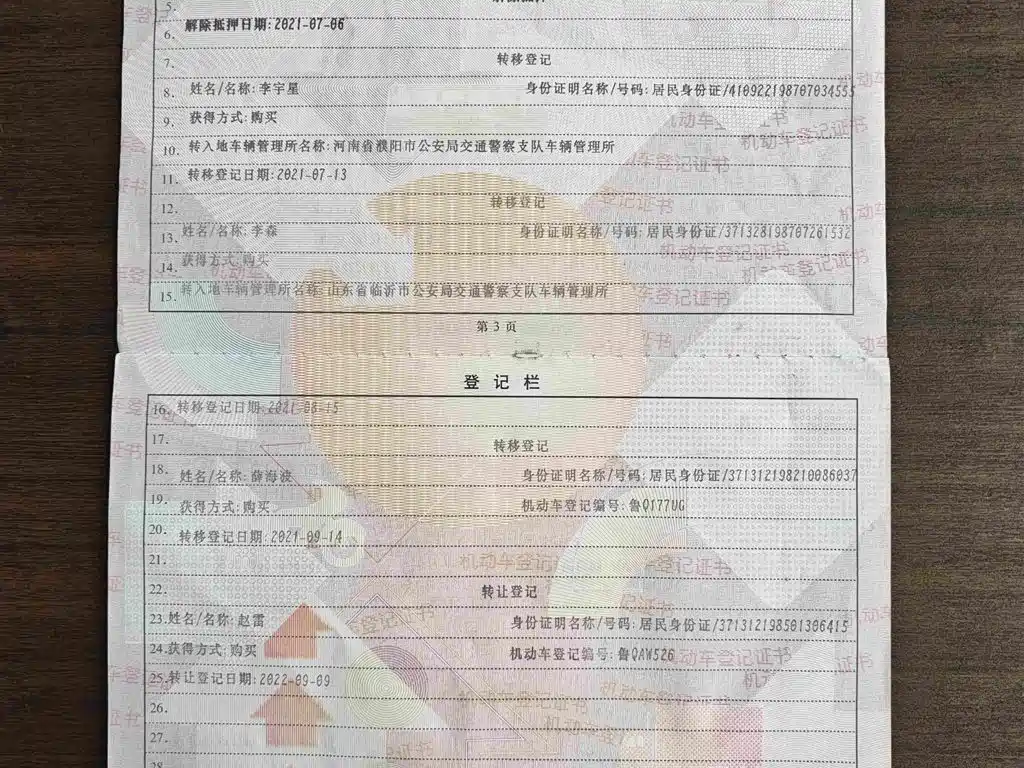 5.
解除抵押日期:2021-07-06
6.
7. 转移登记
8. 姓名/名称:李宇星 身份证明名称/号码:居民身份证/410922198707034555
9. 获得方式:购买
10. 转入地车辆管理所名称:河南省濮阳市公安局交通警察支队车辆管理所
11. 转移登记日期:2021-07-13
12. 转移登记
13. 姓名/名称:李森 身份证明名称/号码:居民身份证/371328198707261532
14. 获得方式:购买
15. 转入地车辆管理所名称:山东省临沂市公安局交通警察支队车辆管理所
第3页
登记栏
16. 转移登记日期:2021-08-15
17. 转移登记
18. 姓名/名称:薛海波 身份证明名称/号码:居民身份证/371312198210086037
19. 获得方式:购买 机动车登记编号:鲁Q177UG
20. 转移登记日期:2021-09-14
21.
22. 转让登记
23. 姓名/名称:赵雷 身份证明名称/号码:居民身份证/371312198501306415
24. 获得方式:购买 机动车登记编号:鲁QAW526
25. 转让登记日期:2022-09-09
26.
27.
28.